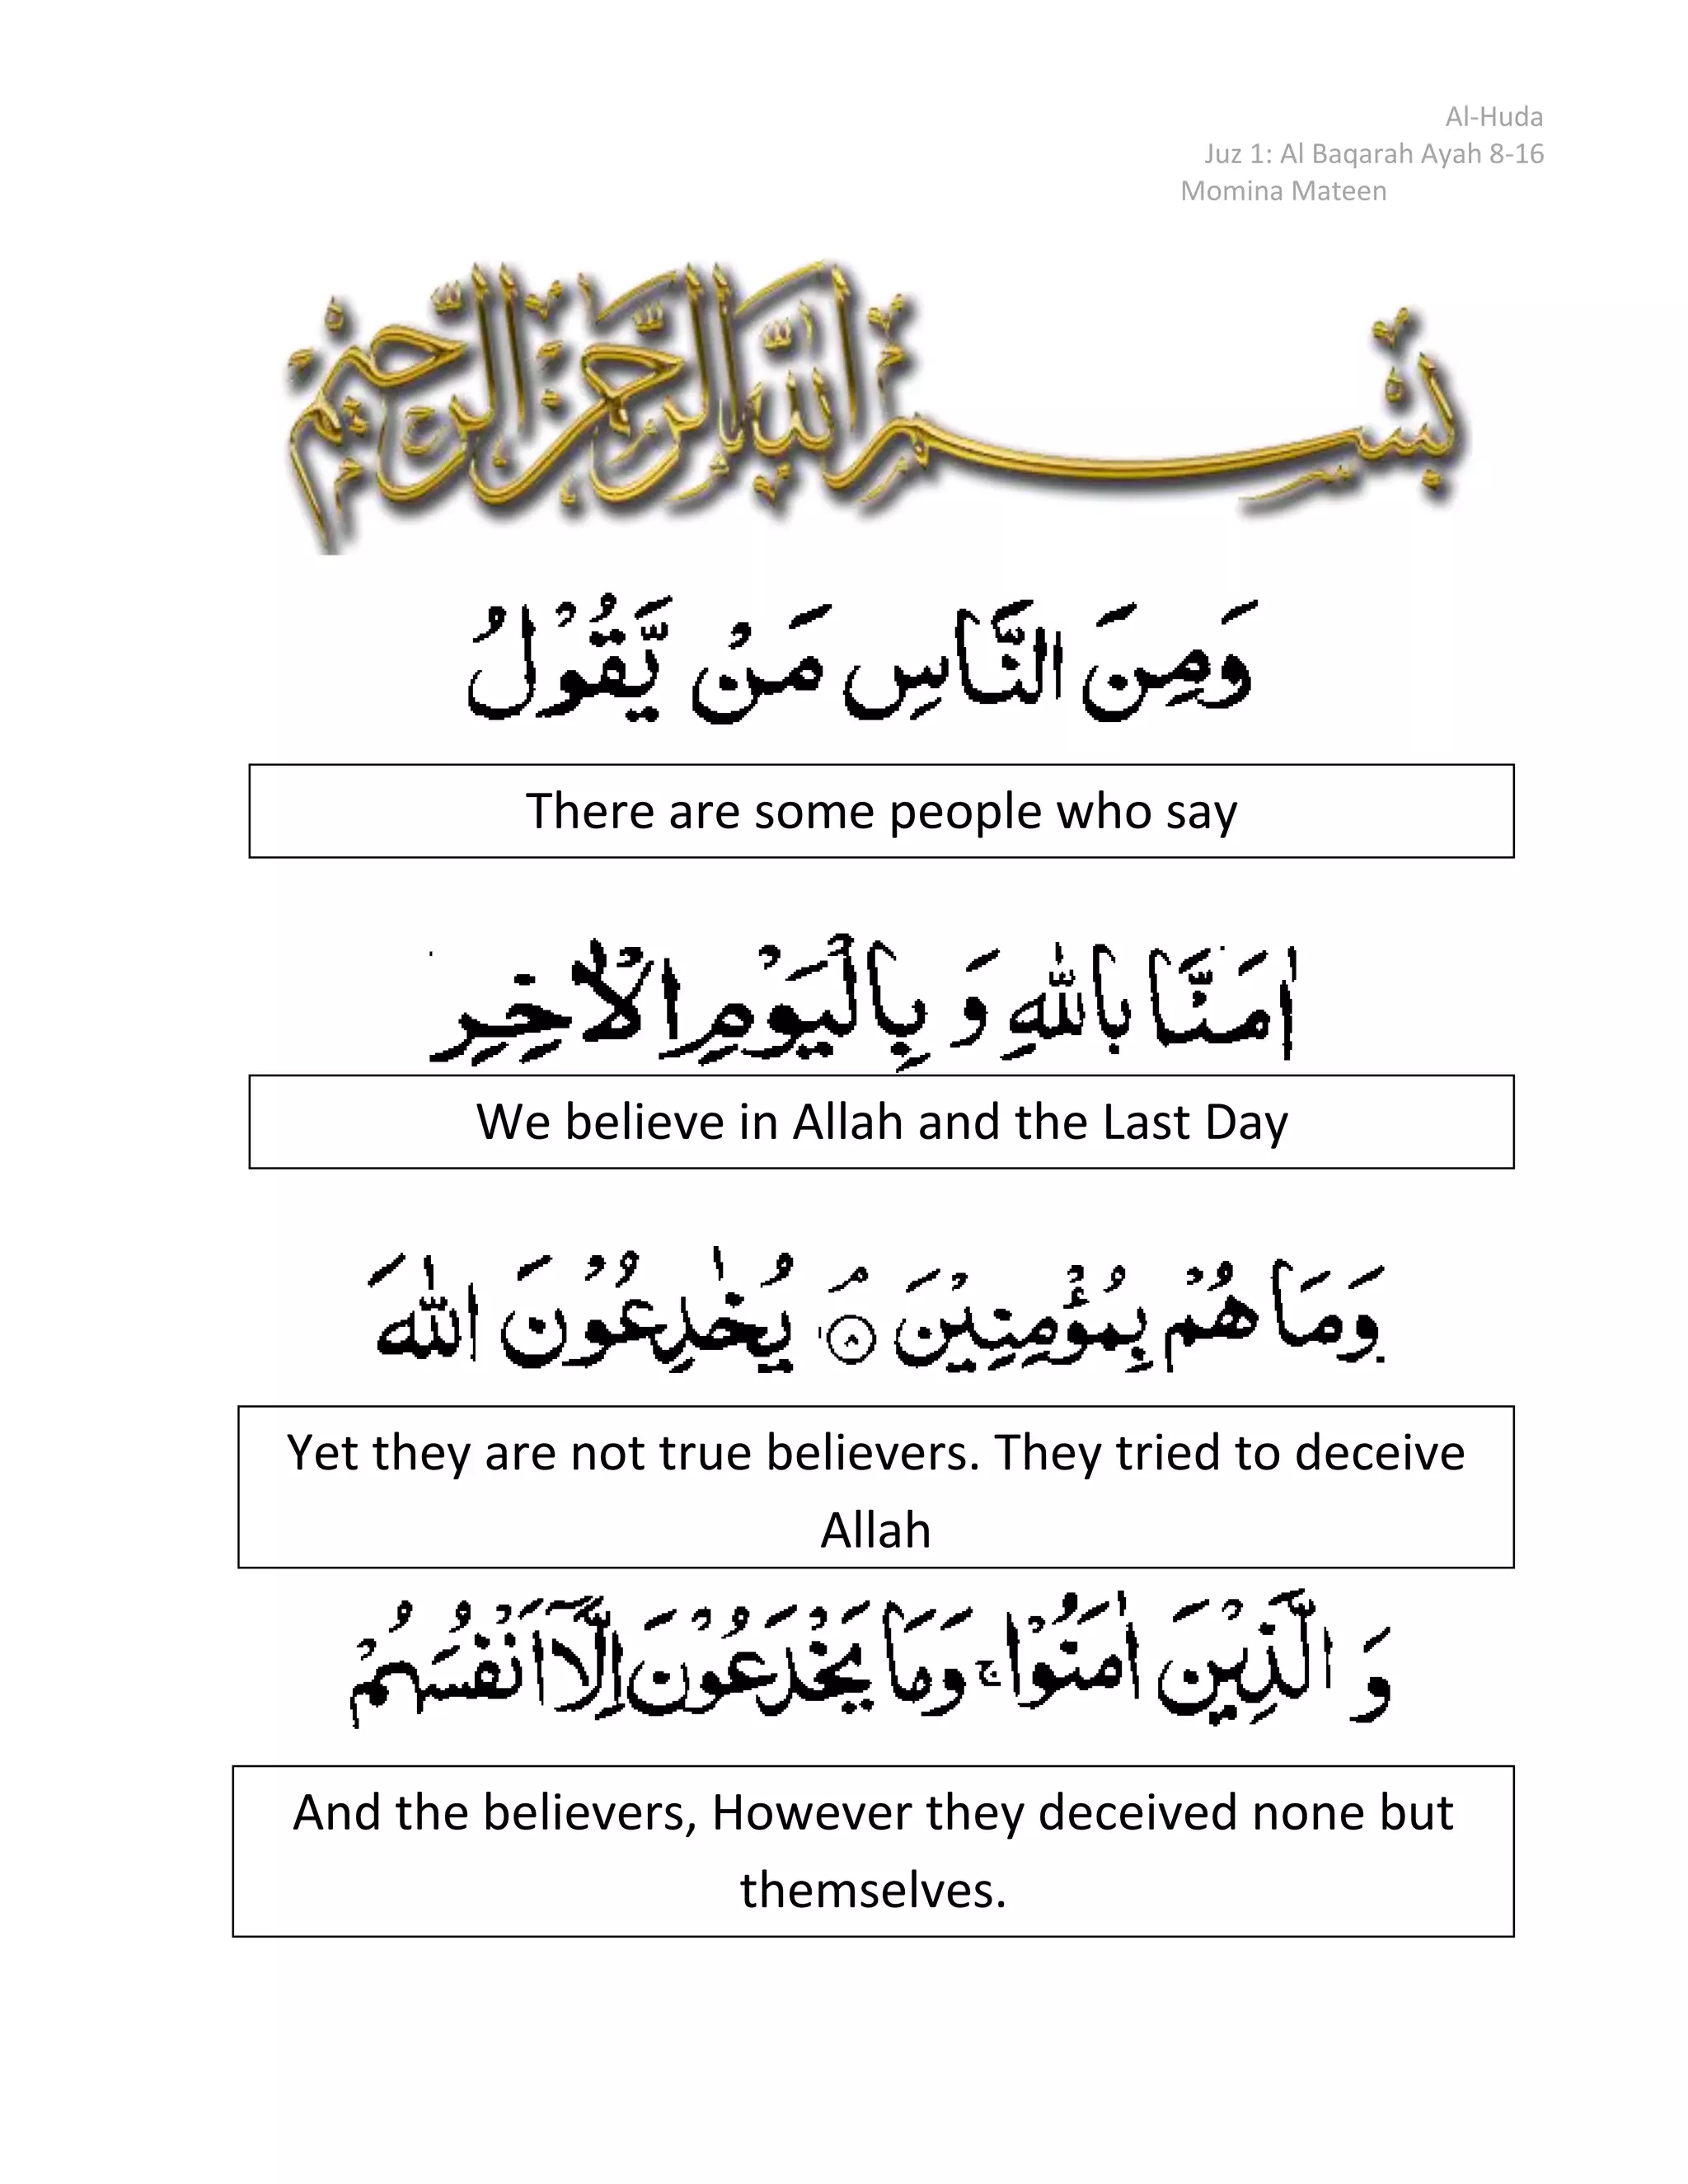 Al-Huda
Juz 1: Al Baqarah Ayah 8-16
Momina Mateen
بِسْمِ اللّٰهِ الرَّحْمٰنِ الرَّحِيْمِ
وَمِنَ النَّاسِ مَنْ يَّقُوْلُ
There are some people who say
اٰمَنَّا بِاللّٰهِ وَ بِالْيَوْمِ الْاٰخِرِ
We believe in Allah and the Last Day
وَمَا هُمْ بِمُؤْمِنِيْنَ ۘ ﴿٨﴾ يُخٰدِعُوْنَ اللّٰهَ
Yet they are not true believers. They tried to deceive
Allah
وَ الَّذِيْنَ اٰمَنُوْا ۚ وَمَا يَخْدَعُوْنَ اِلَّاۤ اَنْفُسَهُمْ
And the believers, However they deceived none but
themselves.